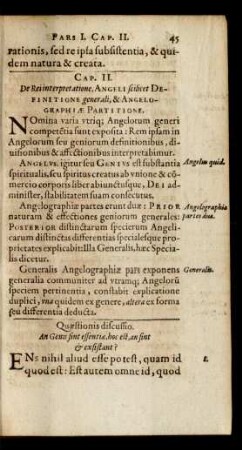 PARS I. CAP. II. 45
rationis, sed re ipsa subsistentia, & qui-
dem natura & creata.
CAP. II.
De Rei interpretatione, ANGELI scilicet DE-
FINITIONE generali, & ANGELO-
GRAPHIÆ PARTITIONE.
NOmina varia vtriq; Angelorum generi
competētia sunt exposita: Rem ipsam in
Angelorum seu geniorum definitionibus, di-
uisionibus & affectionibus interpretabimur.
ANGELVS igitur seu GENIVS est substantia
Angelus quid.
spiritualis, seu spiritus creatus ab vnione & cō-
mercio corporis liber abiunctusque, DEI ad-
minister, stabilitatem suam consecutus.
Angelographiæ partes erunt duæ: PRIOR
Angelographiæ
partes duæ.
naturam & effectiones geniorum generales:
POSTERIOR distinctarum specierum Angeli-
carum distinctas differentias specialesque pro-
prietates explicabit: Illa Generalis, hæc Specia-
lis dicetur.
Generalis Angelographiæ pars exponens
Generalis.
generalia communiter ad vtramq; Angelorū
speciem pertinentia, constabit explicatione
duplici, vna quidem ex genere, altera ex forma
seu differentia deducta.
Quæstionis discussio.
An Genii sint essentiæ, hoc est, an sint
& existant?
ENs nihil aliud esse potest, quam id
1.
quod est: Est autem omne id, quod